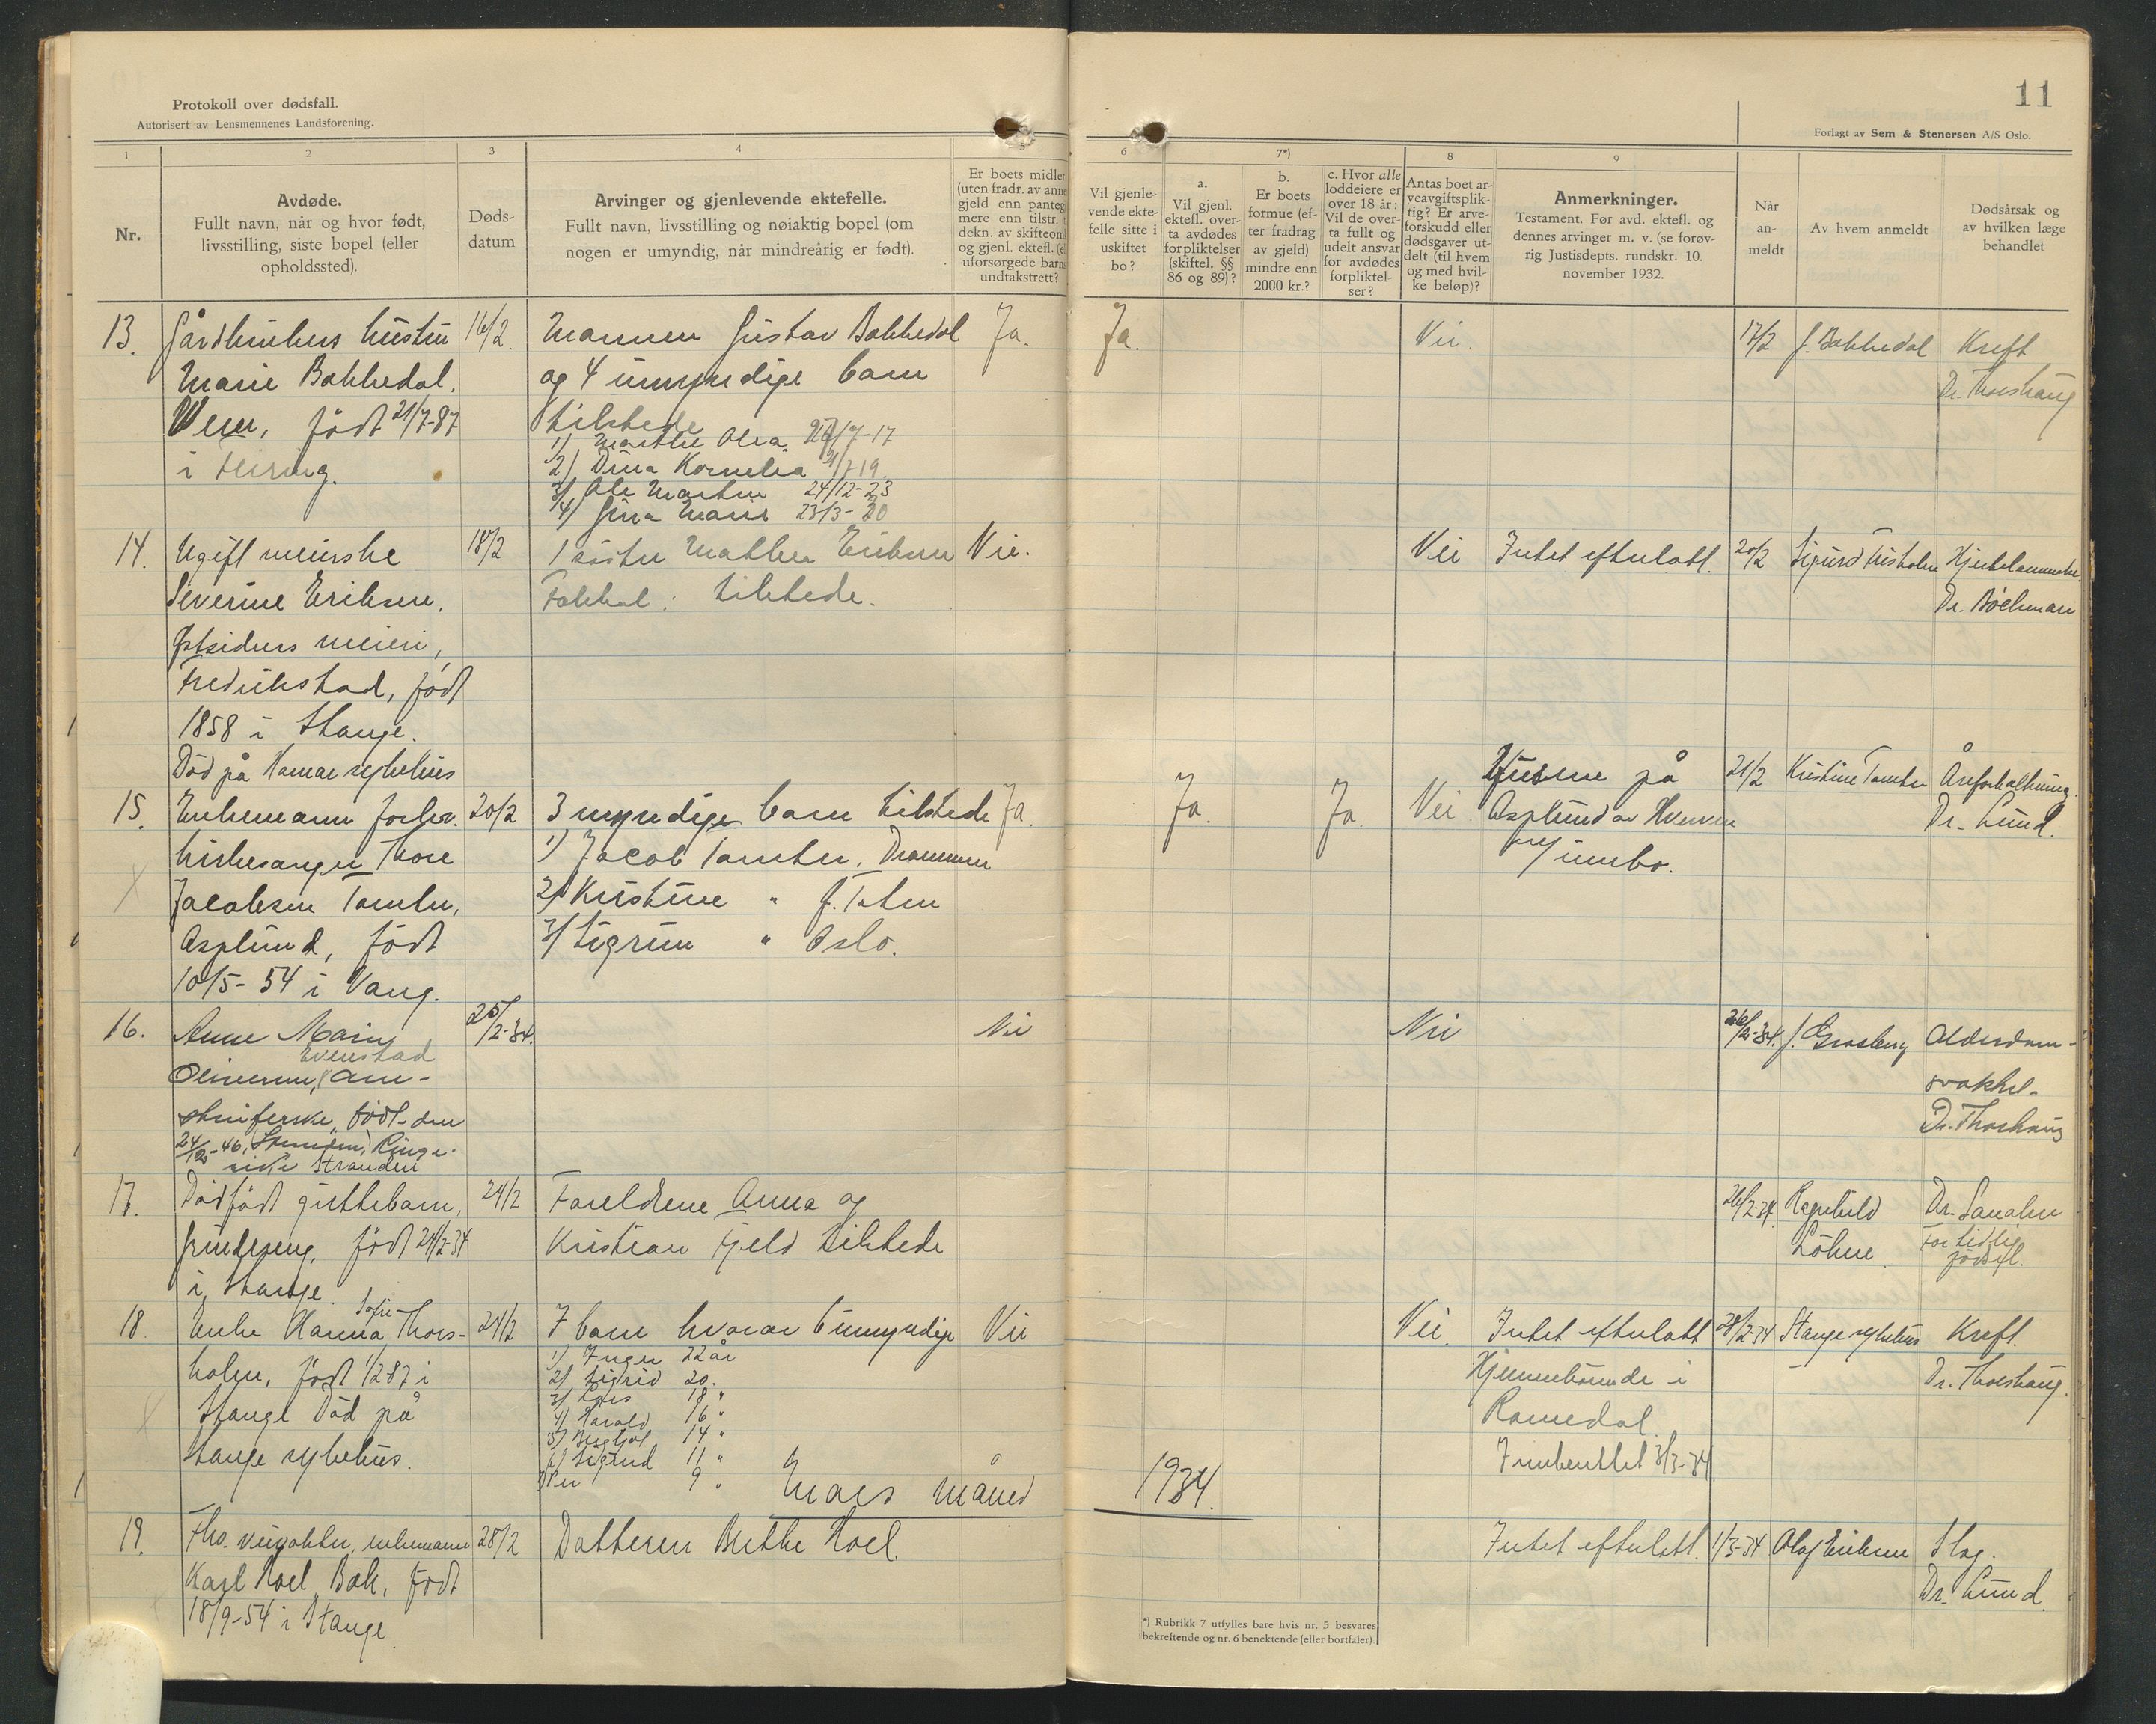 Protokoll over dødsfall.
Autorisert av Lensmennenes Landsforening.
11
Forlagt av Sem & Stenersen A/S Oslo.
1
2
3
4
5
6
7*)
8
9
Nr.
Avdøde.
Fullt navn, når og hvor født,
livsstilling, siste bopel (eller
opholdssted).
Døds-
datum
Arvinger og gjenlevende ektefelle.
Fullt navn, livsstilling og nøiaktig bopel (om
nogen er umyndig, når mindreårig er født).
Er boets midler
(uten fradr. av ann
gjeld enn panteg
mere enn tilstr.
dekn. av skifteom
og gjenl. ektefl. (el
uforsørgede barn
undtakstrett?
Vil gjenle-
vende ekte-
felle sitte i
uskiftet
bo?
a.
Vil gjenl.
ektefl. over-
ta avdødes
forpliktelser
(skiftel. §§
86 og 89)?
b.
Er boets
formue (ef-
ter fradrag
av gjeld)
mindre enn
2000 kr.?
c. Hvor alle
loddeiere er
over 18 år:
Vil de over-
ta fullt og
udelt ansvar
for avdødes
forpliktel-
ser?
Antas boet ar-
veavgiftsplik-
tig? Er arve-
forskudd eller
dødsgaver ut-
delt (til hvem
og med hvil-
ke beløp)?
Anmerkninger.
Testament. Før avd. ektefl. og
dennes arvinger m. v. (se forøv-
rig Justisdepts. rundskr. 10.
november 1932.
Når
an-
meldt
Av hvem anmeldt
Dødsårsak og
av hvilken læge
behandlet
13. Gårdbrukers hustru
Marie Bakkedal.
født 21/7-87
i
16/2
Mannen Gustav Bakkedal
og 4 umyndige barn
tilstede
1) Marthe Olea 7-17
2) Dina Kornelia /7 19
3) Ole Martin 24/12-23
4) Gina Marie 23/3-20
Ja.
Ja.
Nei.
17/2
G. Bakkedal
Kreft
Dr. Thorshaug
14. Ugift meierske
Severine Eriksen,
Østsidens meieri,
Fredrikstad, født
1858 i Stange.
Død på Hamar sykehus
18/2
1 søster Mathea Eriksen
tilstede.
Nei.
Nei
Intet efterlatt.
20/2
Sigurd
Dr. Bøckman
15. Enkemann forhv.
kirkesanger Thore
Jacobsen Tomter,
Asplund, født
10/5-54 i Vang.
20/2
3 myndige barn tilstede
1) Jacob Tomter, Drammen
2) Kristine " Ø. Toten
3) Sigrun " Oslo.
Ja.
Ja.
Ja
Nei
Husene på
Asplund av Hverven
innbo.
21/2
Kristine Tomter
Åreforkalkning.
Dr. Lund.
16. Anne Marie
Evenstad
Oliversen,
født den
24/12-46, Ringe-
Stranden
25/2-34.
Nei
Nei
26/2-34.
Alderdom-
svakhet-
Dr. Thorshaug
17. Dødfødt guttebarn,
Grindeseng, født 24/2-34
i Stange
24/2
Foreldrene Anna og
Kristian Fjeld tilstede
26/2-34
Ragnhild
Løkne.
Dr. Sanaker
For tidlig
fødsel.
18. Enke Hanna Sofie Thors-
holen, født 1/2 87 i
Stange Død på
Stange sykehus.
24/2
7 barn hvorav 6 umyndige
1) Inger 22 år
2) Sigrid 20.
3) Lars 18 "
4) Harald 16 "
5) Bergljot 14 "
6) Sigurd 11 "
7) Per 9 "
Nei
Nei.
Intet efterlatt
Hjemmehørende i
Romedal.
Innberettet 3/3-34
28/2-34
Stange sykehus
Kreft.
Dr. Thorshaug.
Mars måned
1934.
19. Fhv. veivokter, enkemann
Karl Hoel, Bak, født
18/9-54 i Stange.
28/2
Datteren Berthe Hoel.
Intet efterlatt.
1/3-34
Olaf Eriksen
Slag.
Dr. Lund.
*) Rubrikk 7 utfylles bare hvis nr. 5 besvares
bekreftende og nr. 6 benektende (eller bortfaler)